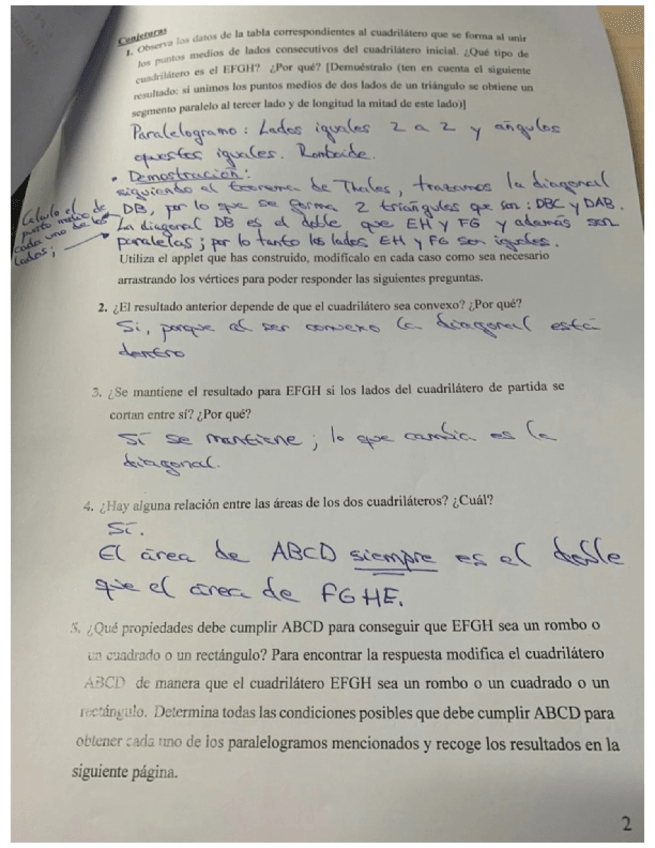 Conjeturas
1. Observa los datos de la tabla correspondientes al cuadrilátero que se forma al unir
los puntos medios de lados consecutivos del cuadrilátero inicial. ¿Qué tipo de
cuadrilátero es el EFGH? ¿Por qué? [Demuéstralo (ten en cuenta el siguiente
resultado: si unimos los puntos medios de dos lados de un triángulo se obtiene un
segmento paralelo al tercer lado y de longitud la mitad de este lado)]
Paralelogramo: Lados iguales 2 a 2 y ángulos
opuestos iguales. Romboide.
• Demostración:
siguiendo el teorema de Thales, trazamos la diagonal
DB, por lo que se forma 2 triángulos que son: DBC y DAB.
La diagonal DB es el doble que EH y FG y además son
paralelas; por lo tanto los lados EH y FG son iguales.
Calculo el
punto medio de
cada uno de los
lados;
Utiliza el applet que has construido, modifícalo en cada caso como sea necesario
arrastrando los vértices para poder responder las siguientes preguntas.
2. ¿El resultado anterior depende de que el cuadrilátero sea convexo? ¿Por qué?
Si, porque al ser convexo la diagonal está
dentro
3. ¿Se mantiene el resultado para EFGH si los lados del cuadrilátero de partida se
cortan entre sí? ¿Por qué?
Sí se mantiene; lo que cambia es la
diagonal.
4. ¿Hay alguna relación entre las áreas de los dos cuadriláteros? ¿Cuál?
Sí.
El área de ABCD siempre es el doble
que el área de FGHE.
5. ¿Qué propiedades debe cumplir ABCD para conseguir que EFGH sea un rombo o
un cuadrado o un rectángulo? Para encontrar la respuesta modifica el cuadrilátero
ABCD de manera que el cuadrilátero EFGH sea un rombo o un cuadrado o un
rectángulo. Determina todas las condiciones posibles que debe cumplir ABCD para
obtener cada uno de los paralelogramos mencionados y recoge los resultados en la
siguiente página.
2